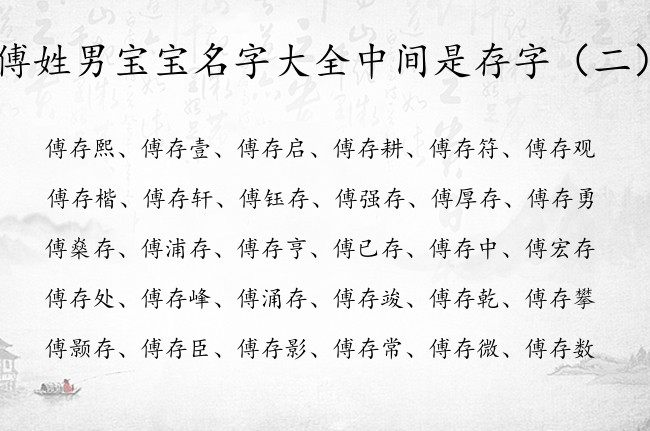 傅姓男宝宝名字大全中间是存字（二）
傅存熙、傅存壹、傅存启、傅存耕、傅存符、傅存观
傅存楷、傅存轩、傅钰存、傅强存、傅厚存、傅存勇
傅燊存、傅浦存、傅存亨、傅已存、傅存中、傅宏存
傅存处、傅存峰、傅涌存、傅存竣、傅存乾、傅存攀
傅颢存、傅存臣、傅存影、傅存常、傅存微、傅存数